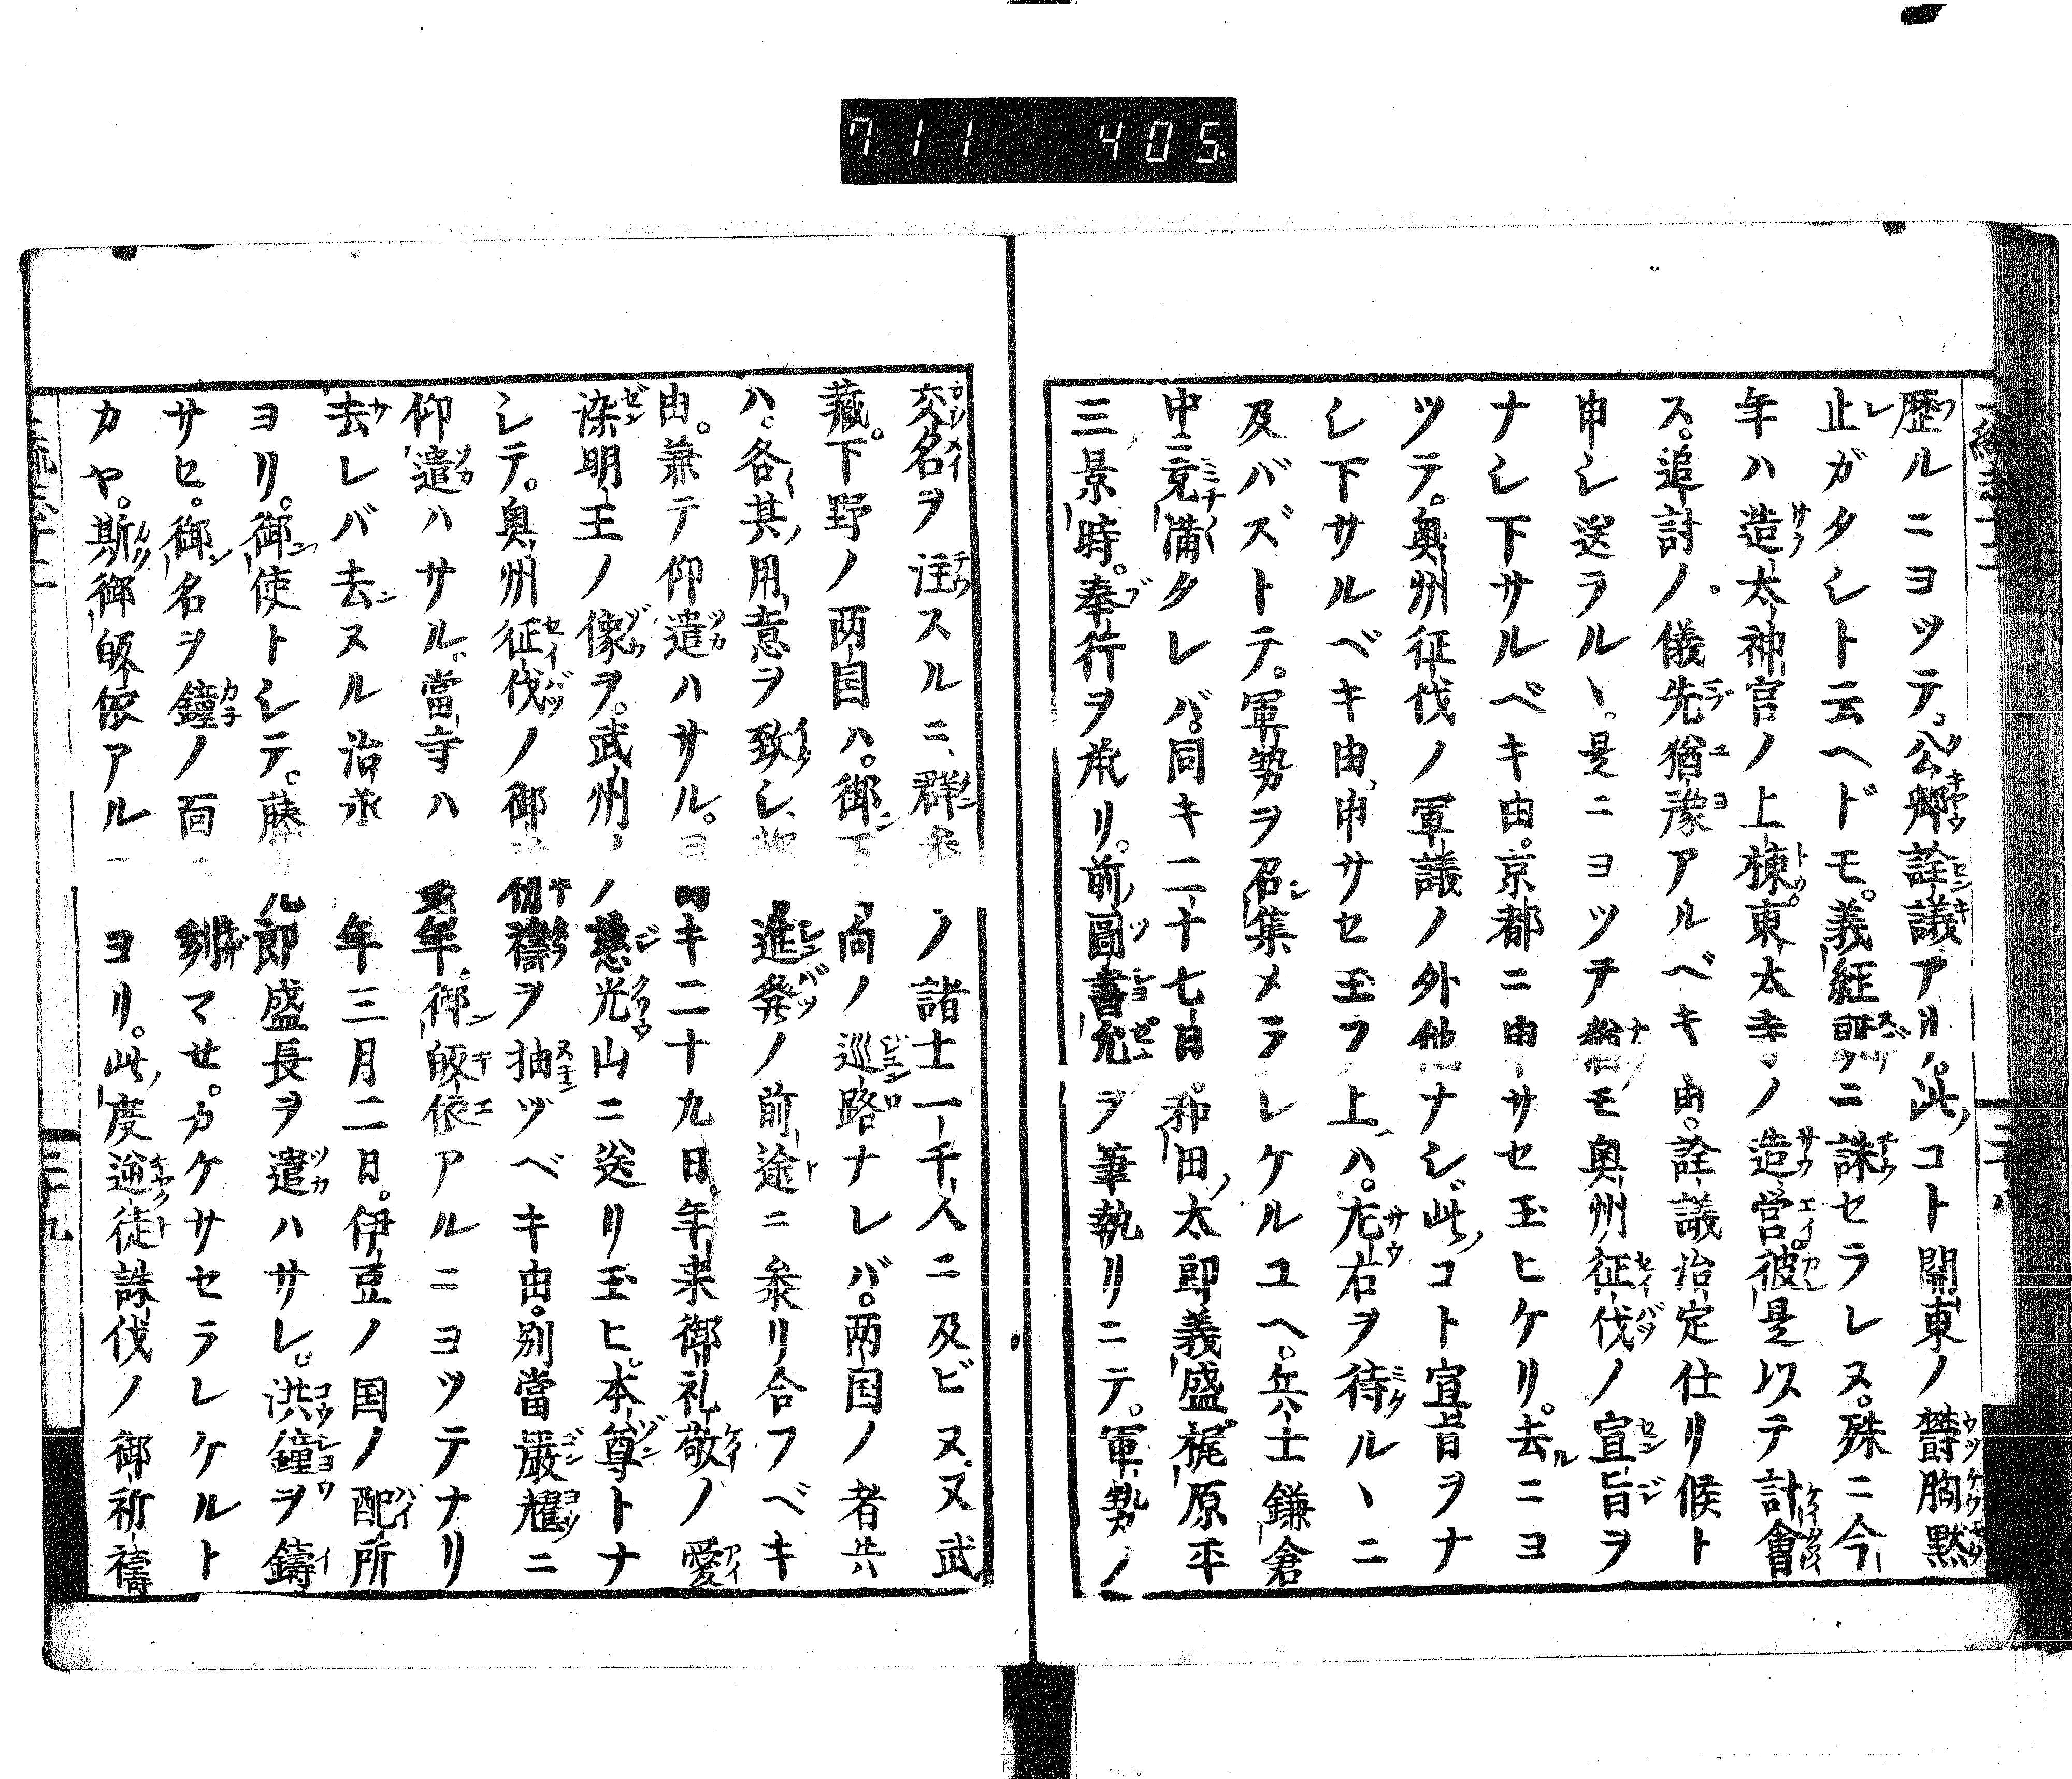 711 405.
歴ルニヨツテ。公卿詮議アリ。此コト関東ノ欝胸黙
止ガタシト云ヘドモ。義経既ニ誅セラレヌ。殊ニ今
年ハ造太神宮ノ上棟。東大寺ノ造営。彼是以テ計會
ス。追討ノ儀先猶豫アルベキ由。詮議治定仕リ候ト
申シ送ラルヽ。是ニヨツテ尚モ奥州征伐ノ宣旨ヲ
ナシ下サルベキ由。京都ニ申サセ玉ヒケリ。去ニヨ
ツテ。奥州征伐ノ軍議ノ外他ナシ。此コト宣旨ヲナ
シ下サルベキ由、申サセ玉フ上ハ。左右ヲ待ルヽニ
及バズトテ。軍勢ヲ召集メラレケルユヘ。兵士鎌倉
中ニ充満タレバ。同キ二十七日。和田太郎義盛。梶原平
三景時。奉行ヲ承リ。前圖書允ヲ筆執リニテ。軍勢ノ
交名ヲ注スルニ、群参ノ諸士一千人ニ及ビヌ。又武
藏。下野ノ両国ハ。御下向ノ巡路ナレバ。両国ノ者共
ハ。各其用意ヲ致シ、御進発ノ前途ニ参リ合フベキ
由。兼テ仰遣ハサル。同キ二十九日。年来御礼敬ノ愛
染明王ノ像ヲ。武州ノ慈光山ニ送リ玉ヒ。本尊トナ
シテ。奥州征伐ノ御祈禱ヲ抽ヅベキ由。別當厳耀ニ
仰遣ハサル。當寺ハ年御皈依アルニヨツテナリ
去レバ去ヌル治承年三月二日。伊豆ノ国ノ配所
ヨリ。御使トシテ。藤九郎盛長ヲ遣ハサレ。洪鐘ヲ鑄
サセ。御名ヲ鐘ノ面ニ刻マせ。カケサセラレケルト
カヤ。斯御皈依アルニヨリ。此度逆徒誅伐ノ御祈禱